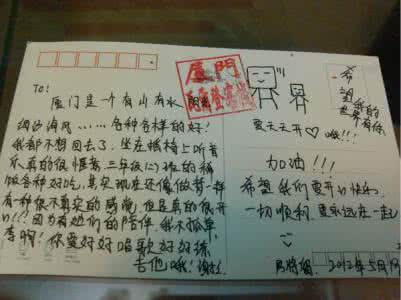 To:
厦门是一个有山有水 阳光
细沙海风……各种各样的好!
我都不想回去了。坐在摇椅上听音
乐真的很惬意 三年级(2)班的稿
做各种好吃,其实现在还像做梦一样
有一种很不真实的感觉 但是真的很开
心!!! 因为有她们的陪伴,我不孤单
李啊! 你要好好唱歌好好练
吉他哦! 谢
厦門
希望我的
世界有你
要天天开♡哦!!!
加油!!!
希望我们要开心快乐
一切顺利 要永远在一起
2012年5月